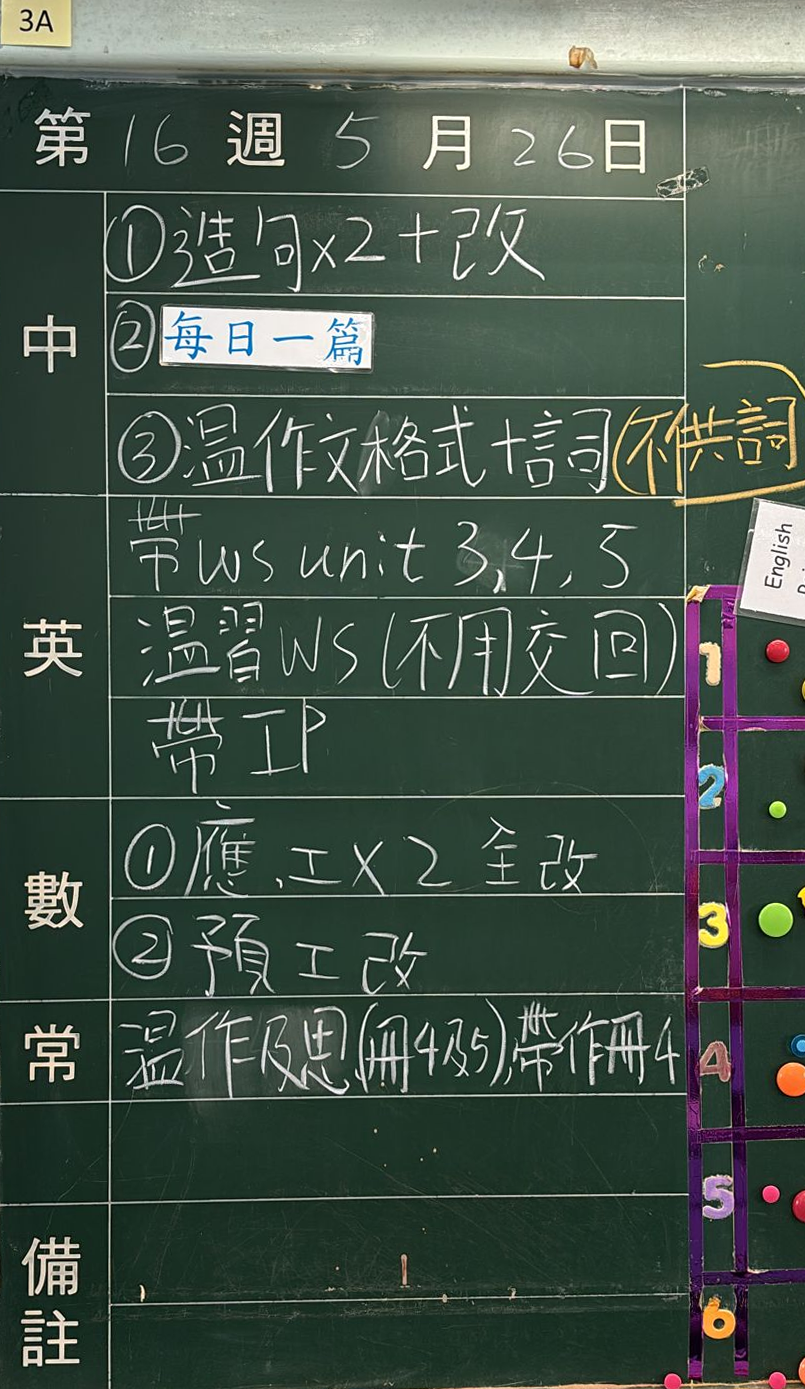 3A
第 16 週 5 月 26 日
中
①造句x2+改
②每日一篇
③温作文格式+詞(不供詞
英
帶WS unit 3,4,5
温習WS(不用交回)
帶IP
English
數
①應.工X2 全改
②預工改
常
温作及思(冊4及5),帶作冊4
備註
1
2
3
4
5
6